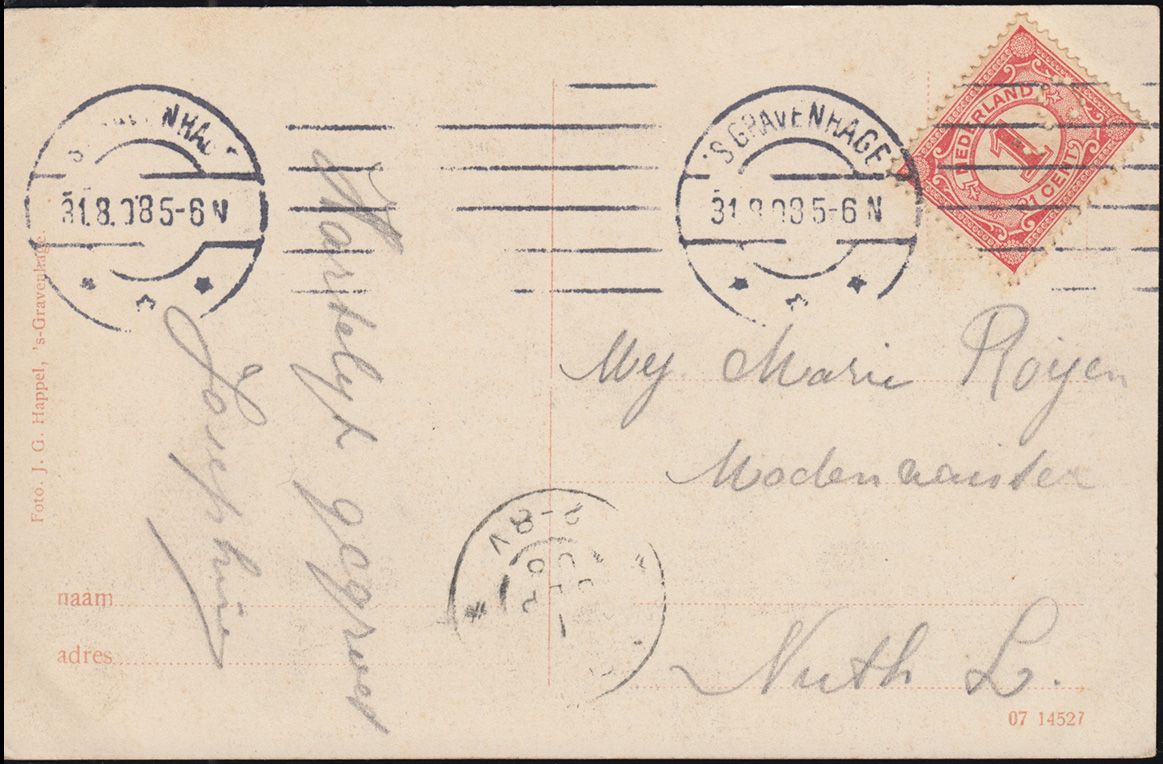 'SGRAVENHAGE
31.8.08 5-6 N
'SGRAVENHAGE
31.8.08 5-6 N
NEDERLAND
1
1 CENT
Foto. J. G. Happel, 's-Gravenhage.
Hartelijk gegroet
Josephine
Mej. Marie Royen
Nuth L.
7-8 V
naam
adres
07 14527